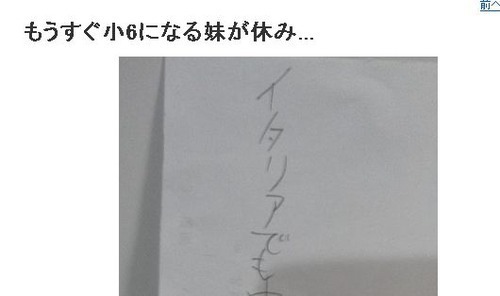 前へ
もうすぐ小6になる妹が休み...
イタリアでも